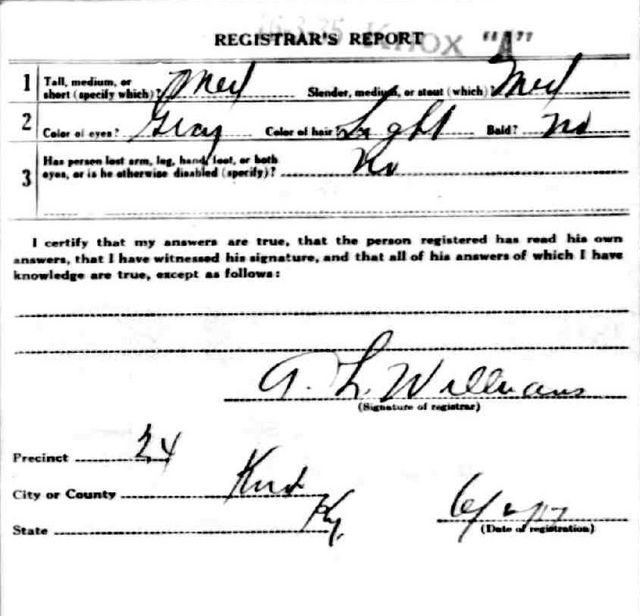 16-3-25 Knox "A"
REGISTRAR'S REPORT
1 Tall, medium, or short (specify which)? Med Slender, medium, or stout (which)? Med
2 Color of eyes? Gray Color of hair Light Bald? No
3 Has person lost arm, leg, hand, foot, or both
eyes, or is he otherwise disabled (specify)? No
I certify that my answers are true, that the person registered has read his own
answers, that I have witnessed his signature, and that all of his answers of which I have
knowledge are true, except as follows:
A. L. Williams
(Signature of registrar)
Precinct 24
City or County Knox
State Ky.
(Date of registration)